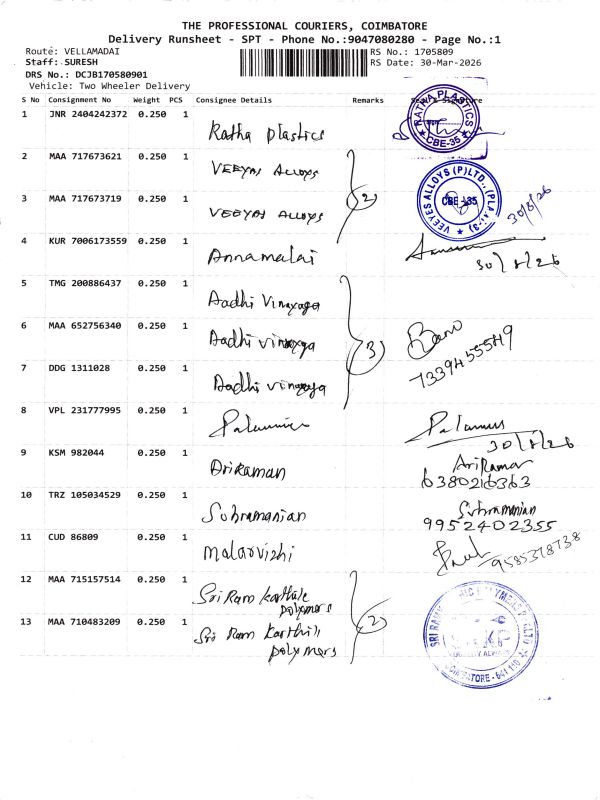 THE PROFESSIONAL COURIERS, COIMBATORE
Delivery Runsheet - SPT - Phone No.:9047080280 - Page No.:1
Route: VELLAMADAI
RS No.: 1705809
Staff: SURESH
RS Date: 30-Mar-2026
DRS No.: DCJB170580901
Vehicle: Two Wheeler Delivery
S No Consignment No Weight PCS Consignee Details Remarks
1 JNR 2404242372 0.250 1 Ratha Plastics
RATHA PLASTICS
CBE-35
2 MAA 717673621 0.250 1 VEEYES ALLOYS
3 MAA 717673719 0.250 1 VEEYES ALLOYS
2
VEEYES ALLOYS (P) LTD.,
CBE - 35
4 KUR 7006173559 0.250 1 Annamalai
5 TMG 200886437 0.250 1 Aadhi Vinayaga
6 MAA 652756340 0.250 1 Aadhi vinayaga
7 DDG 1311028 0.250 1 Aadhi vinayaga
3
7339455549
8 VPL 231777995 0.250 1
9 KSM 982044 0.250 1 Ariraman
AriRaman
6380216363
10 TRZ 105034529 0.250 1 Subramanian
Subramanian
9952402355
11 CUD 86809 0.250 1 Malarvizhi
9585378738
12 MAA 715157514 0.250 1 Sri Ram Karthik
polymers
13 MAA 710483209 0.250 1 Sri Ram Karthik
polymers
2
COIMBATORE - 641 110